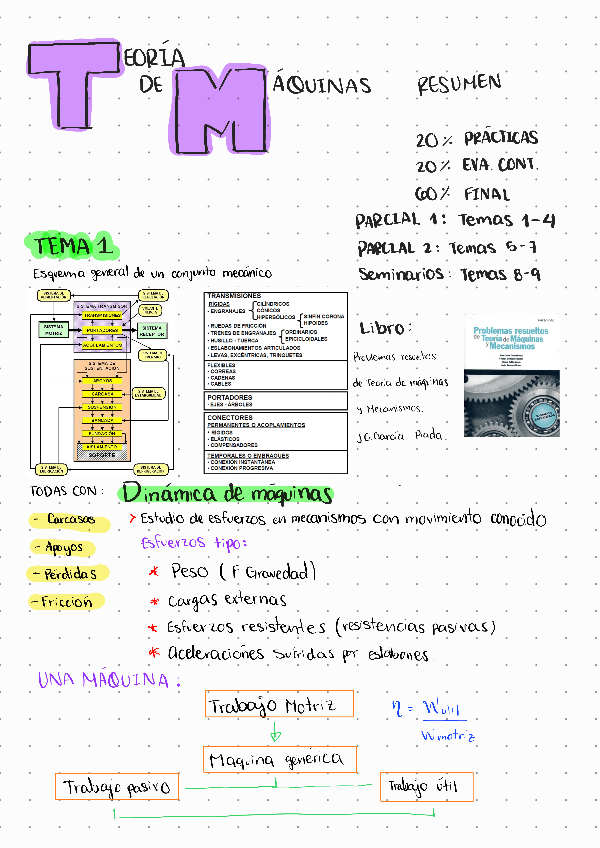 TEORÍA
DE MÁQUINAS
RESUMEN
20% PRÁCTICAS
20% EVA. CONT.
60% FINAL
PARCIAL 1: Temas 1-4
PARCIAL 2: Temas 5-7
Seminarios: Temas 8-9
TEMA 1
Esquema general de un conjunto mecánico
SISTEMA TRANSMISOR
TRANSMISIONES
SISTEMA MOTRIZ
PORTADORES
SISTEMA RECEPTOR
ACOPLAMIENTOS
SISTEMA DE SUSTENTACIÓN
APOYOS
CARCASA
SUSPENSIÓN
BANCADA
FUNDACIÓN
AISLAMIENTO
SOPORTE
TRANSMISIONES
RÍGIDAS
• ENGRANAJES
CILÍNDRICOS
CÓNICOS
HIPERBÓLICOS
SINFÍN CORONA
HIPOIDES
• RUEDAS DE FRICCIÓN
• TRENES DE ENGRANAJES
ORDINARIOS
EPICICLOIDALES
• HUSILLO - TUERCA
• ESLABONAMIENTOS ARTICULADOS
• LEVAS, EXCÉNTRICAS, TRINQUETES
FLEXIBLES
• CORREAS
• CADENAS
• CABLES
PORTADORES
• EJES - ÁRBOLES
CONECTORES
PERMANENTES O ACOPLAMIENTOS
• RÍGIDOS
• ELÁSTICOS
• COMPENSADORES
TEMPORALES O EMBRAGUES
• CONEXIÓN INSTANTÁNEA
• CONEXIÓN PROGRESIVA
Libro:
Problemas resueltos
de Teoría de máquinas
y Mecanismos.
J.C. García Prada.
Problemas resueltos
de Teoría de Máquinas
y Mecanismos
TODAS CON:
- Carcasas
- Apoyos
- Pérdidas
- Fricción
Dinámica de máquinas
> Estudio de esfuerzos en mecanismos con movimiento conocido
Esfuerzos tipo:
* Peso (F Gravedad)
* Cargas externas
* Esfuerzos resistentes (resistencias pasivas)
* Aceleraciones sufridas por eslabones
UNA MÁQUINA:
Trabajo Motriz
η = Wútil
Wmotriz
Maquina genérica
Trabajo pasivo
Trabajo útil